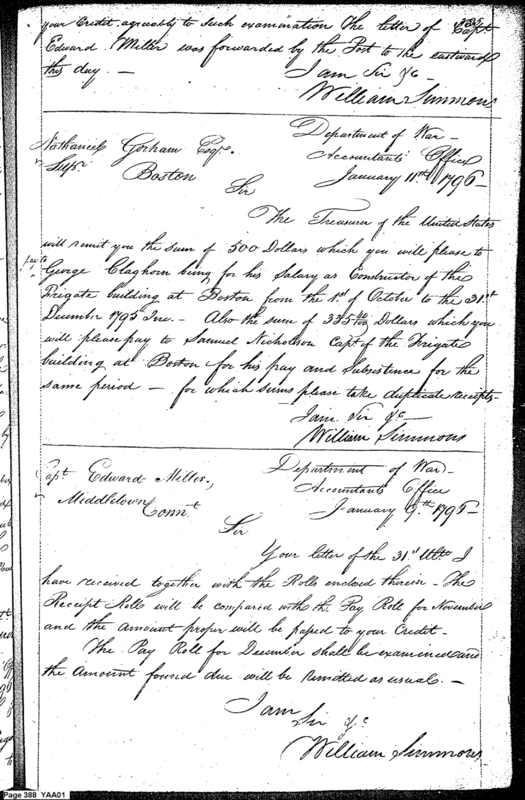 your Credit agreeably to such examination The letter of Capt
Edward Miller was forwarded by the Post to the eastward
this day. —
I am Sir &c —
William Simmons
Department of War —
Nathaniel Gorham Esqr.
Accountants Office
Supr. Boston
January 11th 1796 —
Sir
The Treasurer of the United States
will remit you the sum of 500 Dollars which you will please to
pay to
George Claghorn being for his Salary as Constructor of the
Frigate building at Boston from the 1st of October to the 31st
December 1795 Inc. — Also the sum of 335 40/100 Dollars which you
will please pay to Samuel Nicholson Capt of the Frigate
building at Boston for his pay and Subsistence for the
same period — for which sums please take duplicate receipts —
I am Sir &c —
William Simmons
Capt Edward Miller,
Department of War —
Middletown
Accountants Office
Connt
January 9th 1796 —
Sir
Your letter of the 31st Ulto I
have received together with the Rolls enclosed therein — The
Receipt Rolls will be compared with the Pay Roll for November
and the amount proper will be passed to your Credit —
The Pay Roll for December shall be examined and
the Amount found due will be remitted as usual. —
I am
Sir &c
William Simmons
Page 388 YAA01